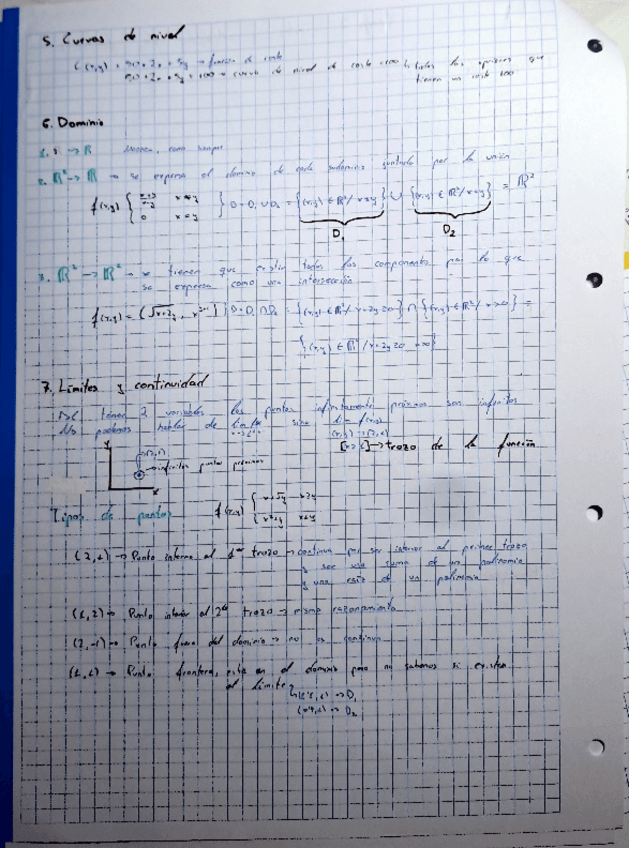 5. Curvas de nivel
C(x,y) = 500 + 2x + 5y → función de coste
500 + 2x + 5y = 600 → curva de nivel de coste 600 todas las opciones que
tienen un coste 600
6. Dominio
1. R → R
2. R² → R → se expresa el dominio de cada subdominio juntado por la unión
f(x,y) { x+y/x-y x≠y } D = D₁ ∪ D₂ = {(x,y) ∈ R² / x≠y} ∪ {(x,y) ∈ R² / x=y} = R²
0 x=y
D₁ D₂
3. R² → R² → tienen que existir todas las componentes por lo que
se expresa como una intersección
f(x,y) = (√x+2y, ) D = D₁ ∩ D₂ = {(x,y) ∈ R² / x+2y≥0} ∩ {(x,y) ∈ R² / x>0} =
{(x,y) ∈ R² / x+2y≥0 x>0}
7. Límites y continuidad
Al tener 2 variables los puntos infinitamente próximos son infinitos
No podemos hablar de lim f(x) sino lim f(x,y)
→ trozo de la función
y
→ infinitos puntos próximos
x
Tipos de puntos f(x,y) {
(2,1) → Punto interno al 1er trozo → continua por ser interior al primer trozo
y ser una suma de un polinomio
y una raíz de un polinomio
(1,2) → Punto interior al 2do trozo → mismo razonamiento
(2,-1) → Punto fuera del dominio → no es continua
(1,1) → Punto frontera, está en el dominio pero no sabemos si existe
el límite
→ D₁
→ D₂